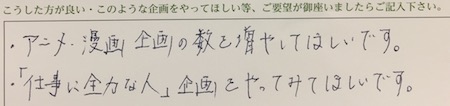 こうした方が良い・このような企画をやってほしい等、ご要望が御座いましたらご記入下さい。
・アニメ・漫画 企画の数を増やしてほしいです。
・「仕事に全力な人」企画をやってみてほしいです。